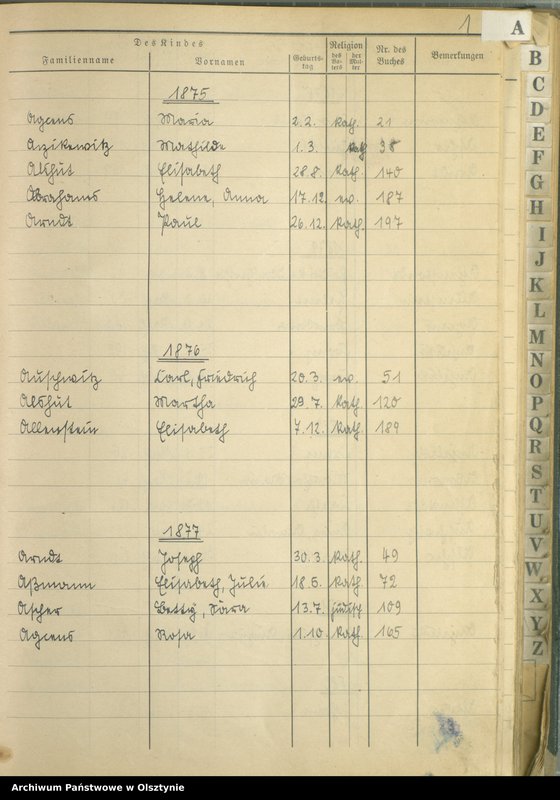 1
A
Des Kindes
Familienname Vornamen Geburts-tag Religion des Va-ters der Mut-ter Nr. des Buches Bemerkungen
1875
Agcens Maria 2.2. kath. 21
Mathilde 1.3. kath 38
Alshut Elisabeth 28.8. kath. 140
Abrahams Helene, Anna 17.12. ev. 187
Arndt Paul 26.12. kath. 197
1876
Auschwitz Carl, Friedrich 20.3. ev. 51
Alshut Martha 29.7. kath. 120
Allenstein Elisabeth 7.12. kath. 189
1877
Arndt Joseph 30.3. kath. 49
Aßmann Elisabeth, Julie 18.5. kath. 72
Ascher Bettÿ, Sara 13.7. jüdisch 109
Agcens Rosa 1.10. kath. 165
B
C
D
E
F
G
H
I
J
K
L
M
N
O
P
Q
R
S
T
U
V
W
X
Y
Z
Archiwum Państwowe w Olsztynie